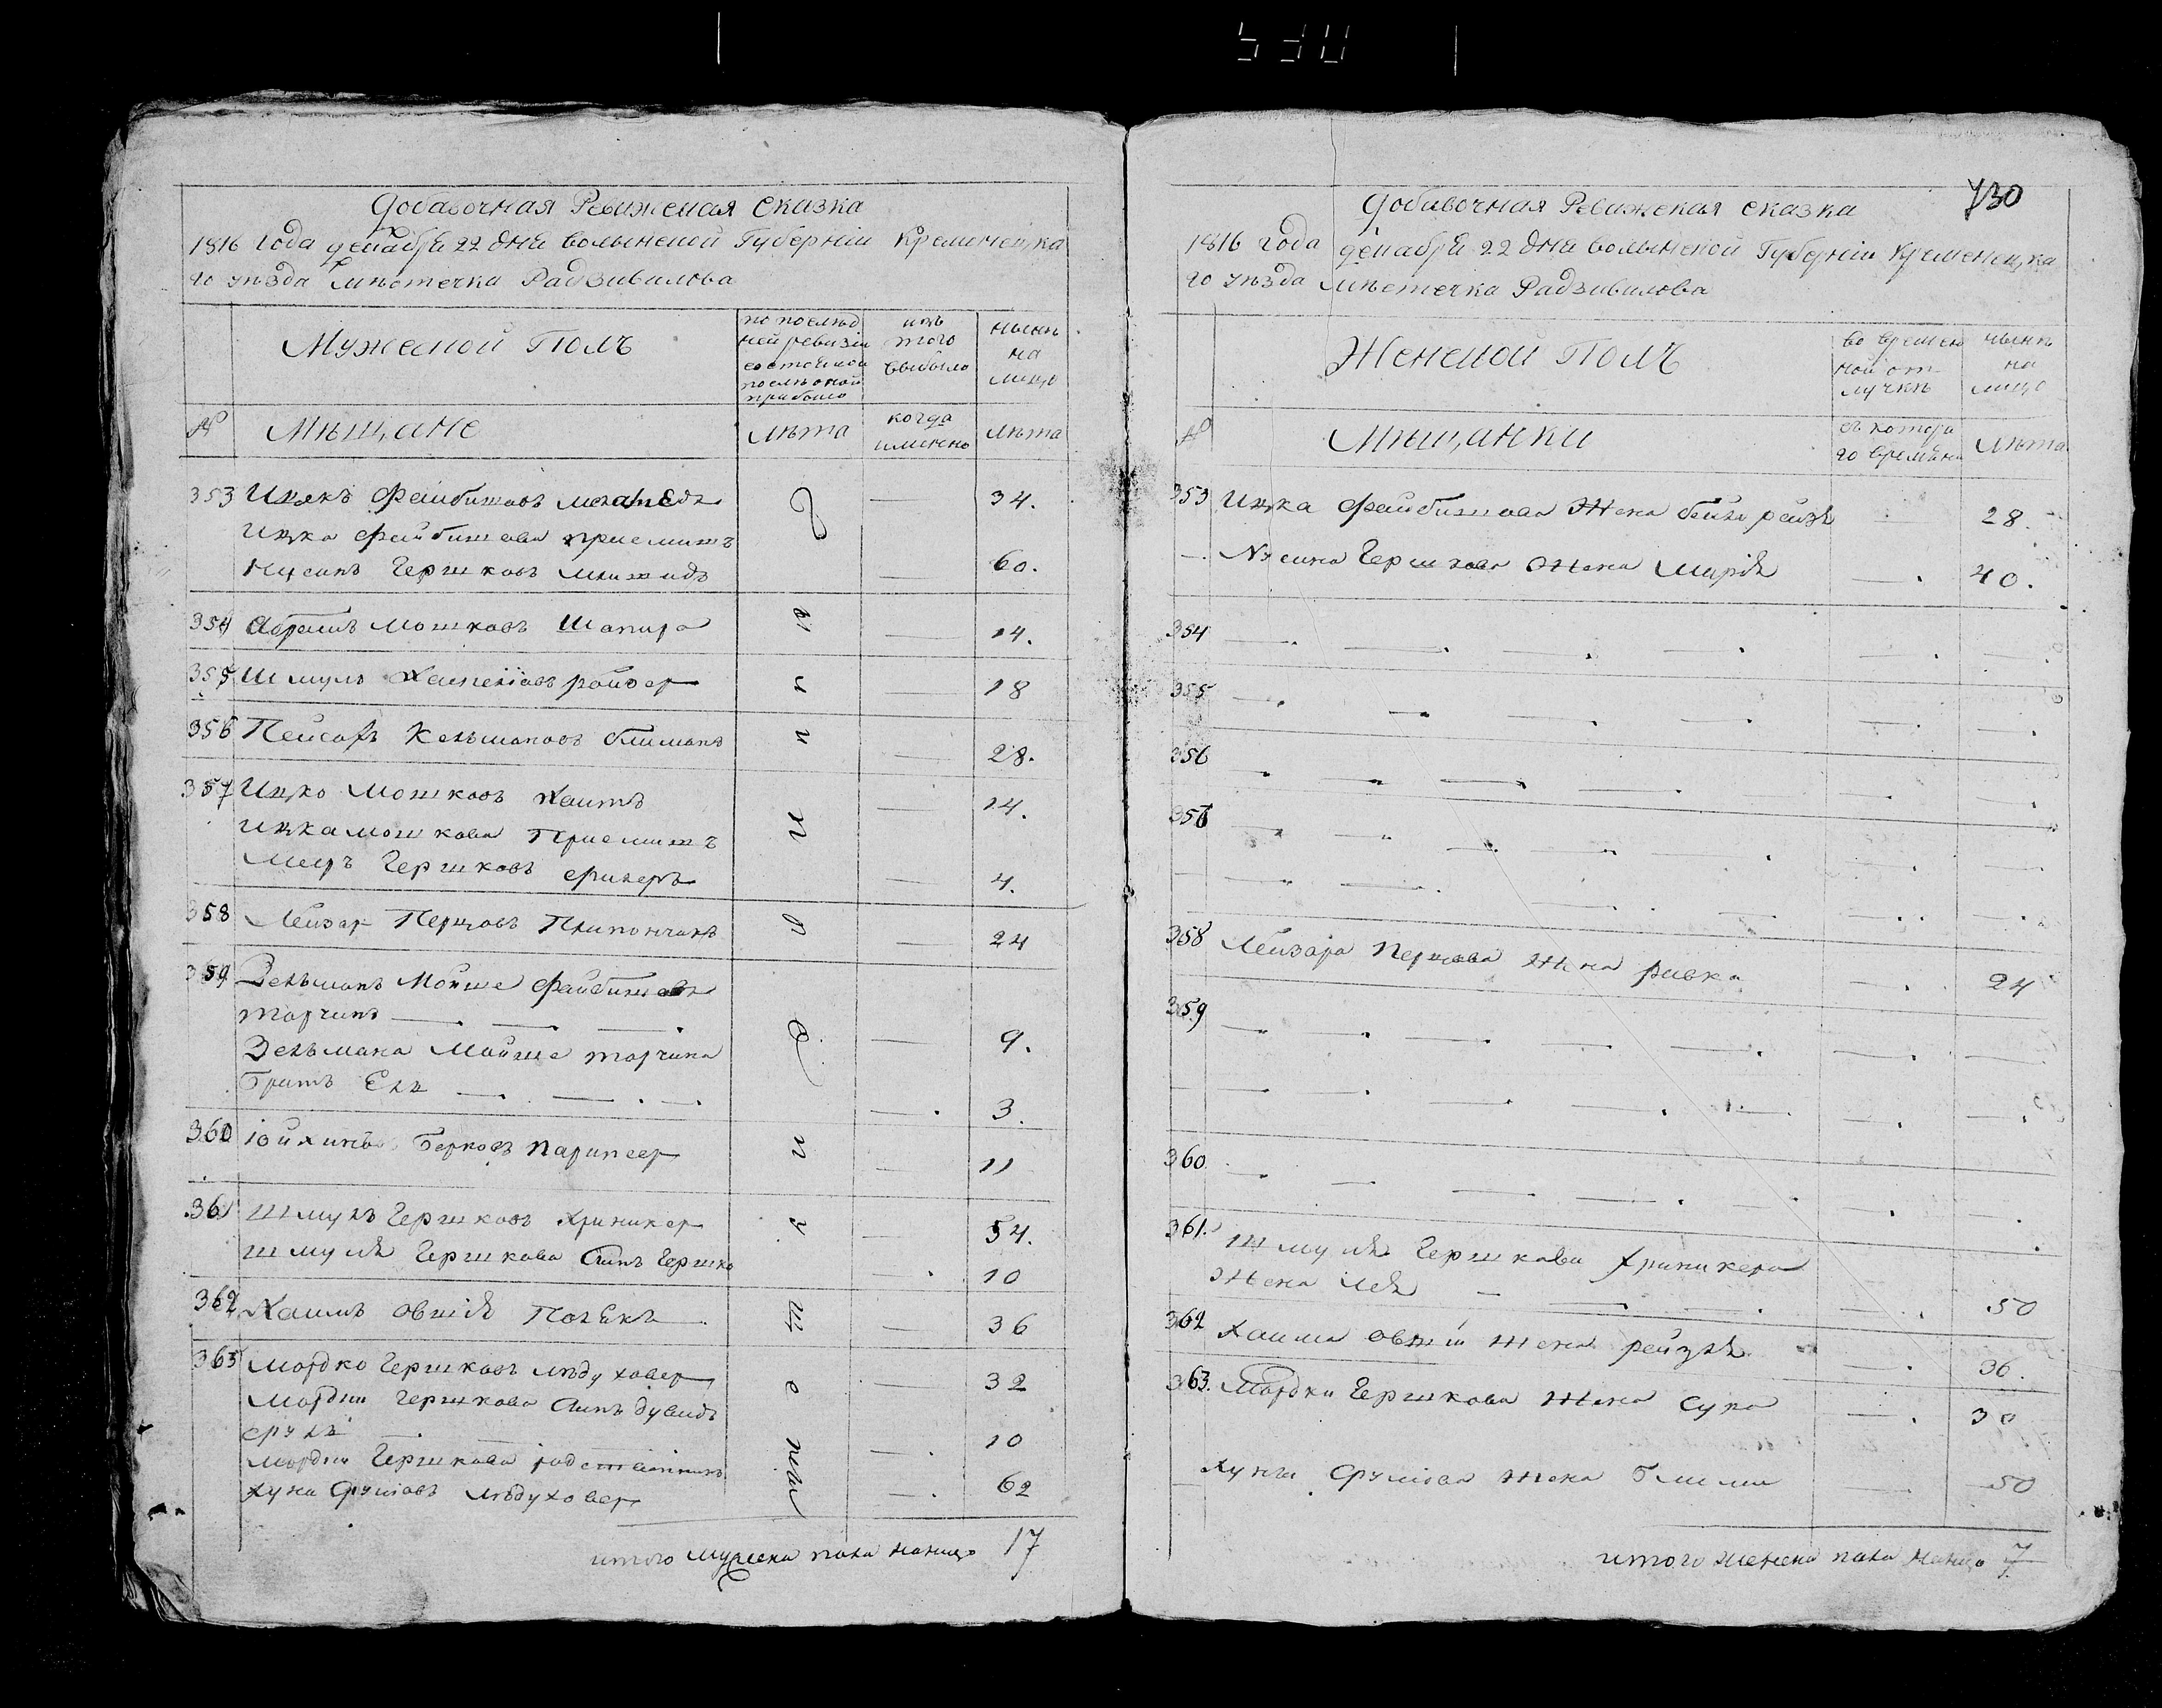 Добавочная Ревижская Сказка
1816 года декабря 22 дня волынской Губернiи Кременецка
го уезда мѣстечка Радзивилова
Мужеской Полъ
по послѣд
ней ревизiи
состояло и
послѣ оной
прибыло
изъ
того
выбыло
нынѣ
на
лицо
№
Мѣщане
лѣта
когда
именно
лѣта
353 Ицекъ Файбишовъ 34.
Ицка Файбишова приемышъ
Нусинъ Гершковъ 60.
354 Абрамъ Мошковъ Шапира 14.
355 Шмуль райзер 18
356 Пейсахъ Кельмановъ 28.
357 Ицко Мошковъ 14.
Ицка Мошкова Приемышъ
Мееръ Гершковъ 4.
358 Лейзер Перцовъ 24
359 Зельманъ Мойше Файбишовъ
Торчинъ 9.
Зельмана Мойше торчина
братъ Ель 3.
360 Берковъ 11
361 Шмуль Гершковъ Хриникер 54.
Шмуля Гершкова Сынъ Гершко 10
362 Хаимъ Овшiя 36
363 Мордко Гершковъ мѣдуховер 32
Мордки Гершкова Сынъ Дувидъ
Сруль 10
Мордки Гершкова родственникъ
Хуна Срулiовъ мѣдуховер 62
итого мужеска пола налицо 17
730
Добавочная Ревижская сказка
1816 года декабря 22 дня волынской Губернiи Кременецка
го уезда мѣстечка Радзивилова
Женской Полъ
во времен
ной от
лучкѣ
нынѣ
на
лицо
№
Мѣщанки
съ котора
го времяни
лѣта
353 Ицка Файбишова Жена бейла рейзя 28.
Нусина Гершкова Жена 40.
354
355
356
357
358 Лейзора Перцова жена ривка 24
359
360
361. Шмуля Гершкова Хриникера
Жена Лея 50
362 Хаима Овшiи жена рейзля 36.
363. Мордки Гершкова жена Сура 30
Хуны Срулiова жена блима 50
итого женска пола налицо 7